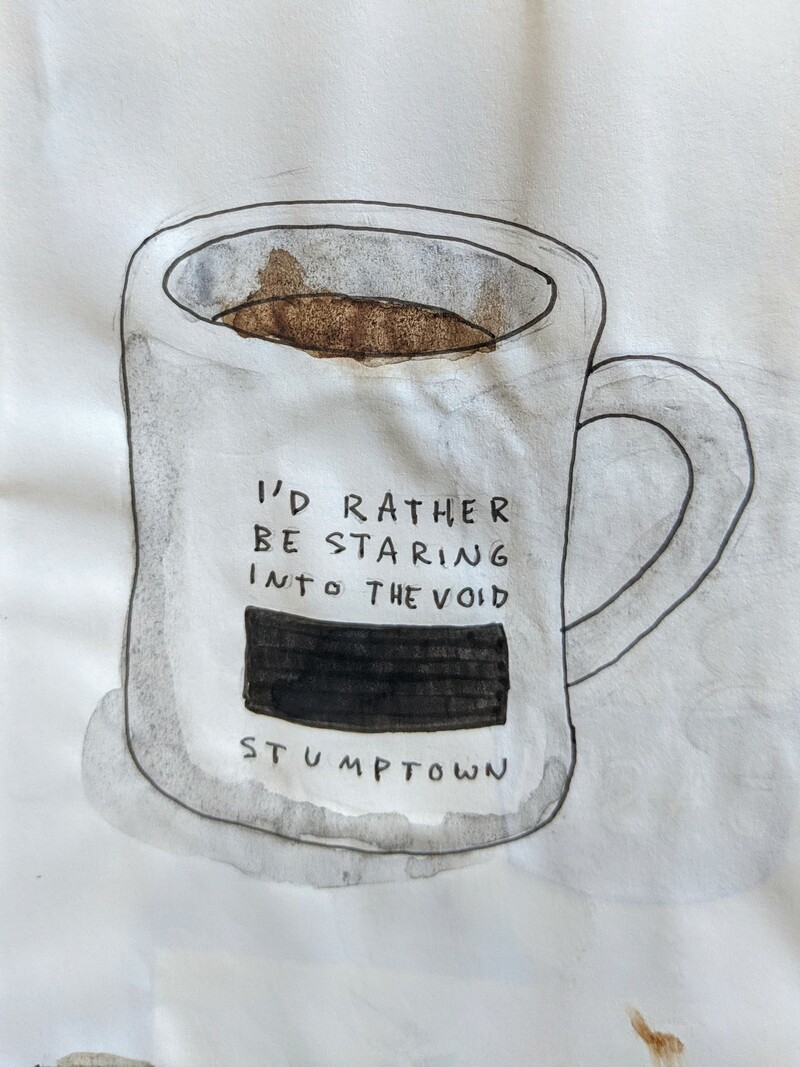 I'D RATHER
BE STARING
INTO THE VOID
STUMPTOWN